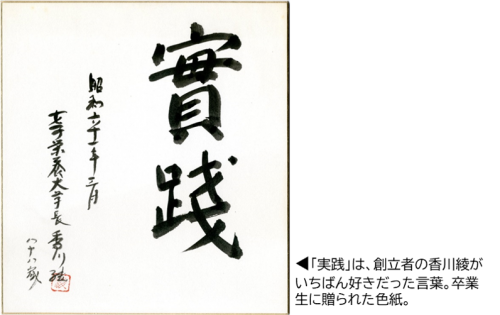 實踐
昭和六十一年三月
女子栄養大学長 香川綾
八十八歳
◀「実践」は、創立者の香川綾が
いちばん好きだった言葉。卒業
生に贈られた色紙。